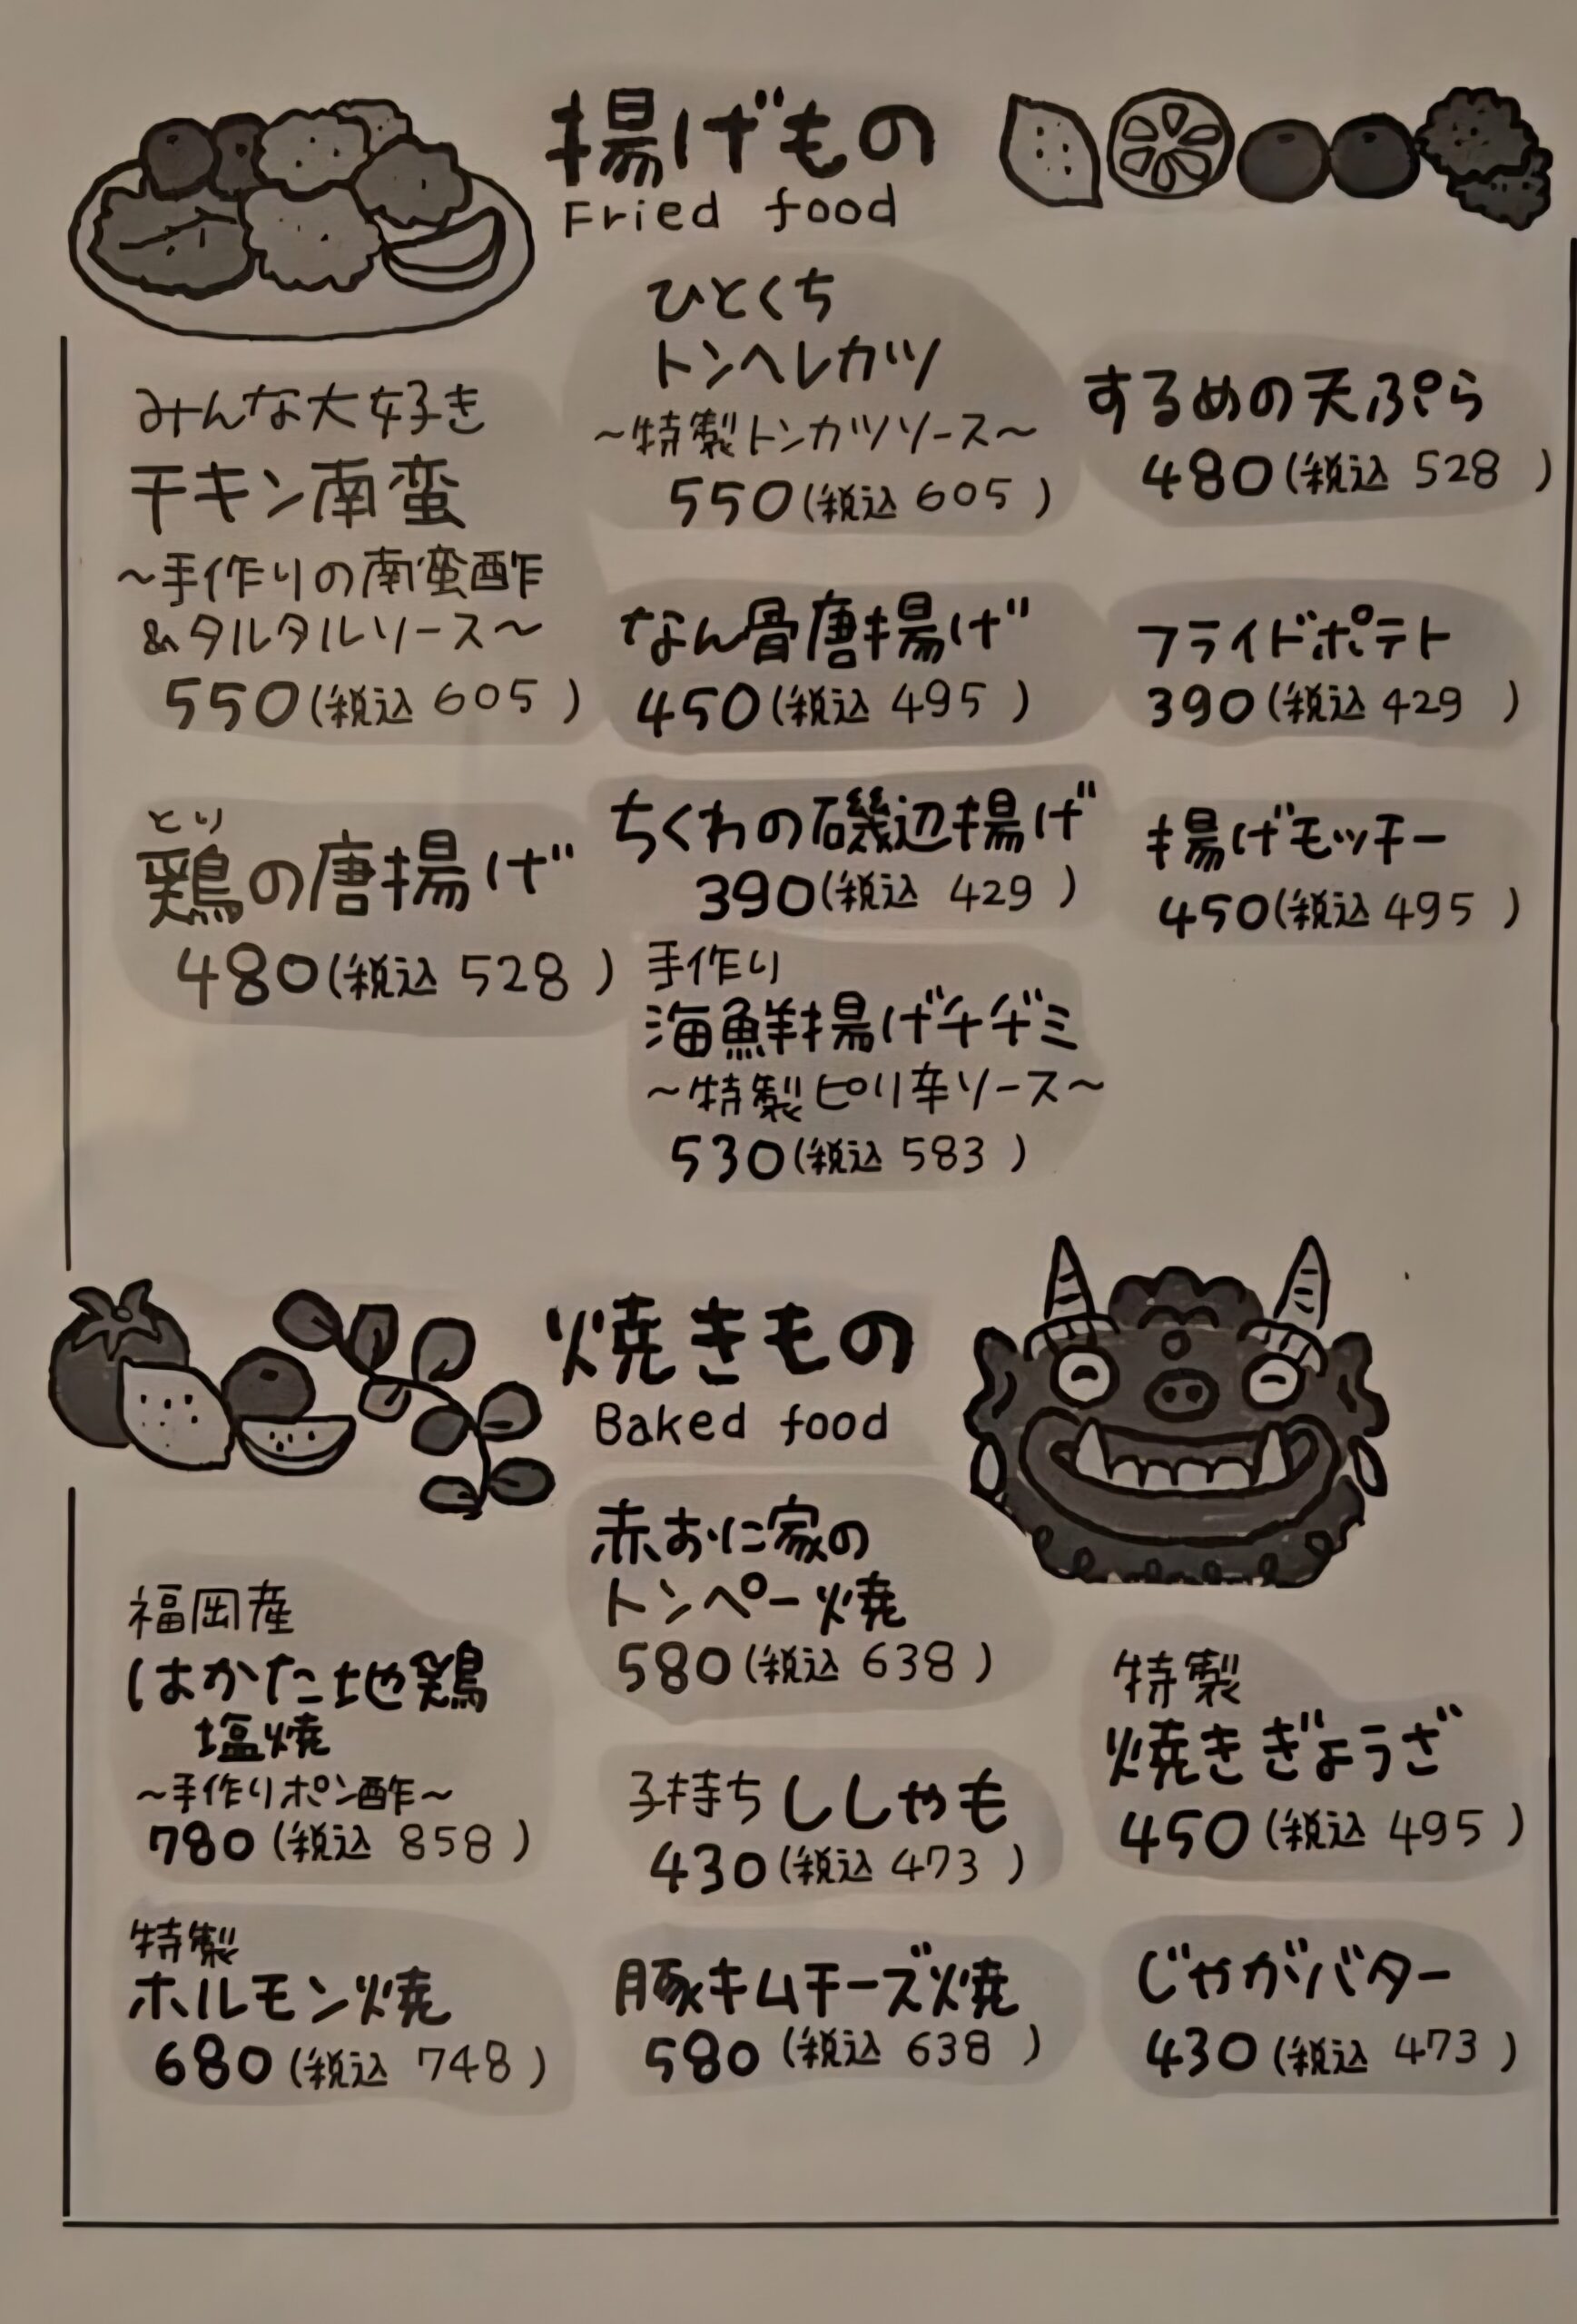 揚げもの
Fried food
みんな大好き
チキン南蛮
～手作りの南蛮酢
&タルタルソース～
550(税込 605 )
とり
鶏の唐揚げ
480(税込 528 )
ひとくち
トンヘレカツ
～特製トンカツソース～
550(税込 605 )
なん骨唐揚げ
450(税込 495 )
ちくわの磯辺揚げ
390(税込 429 )
手作り
海鮮揚げチヂミ
～特製ピリ辛ソース～
530(税込 583 )
するめの天ぷら
480(税込 528 )
フライドポテト
390(税込 429 )
揚げモッチー
450(税込 495 )
焼きもの
Baked food
福岡産
はかた地鶏
塩焼
～手作りポン酢～
780(税込 858 )
特製
ホルモン焼
680(税込 748 )
赤おに家の
トンペー焼
580(税込 638 )
子持ちししゃも
430(税込 473 )
豚キムチーズ焼
580(税込 638 )
特製
焼きぎょうざ
450(税込 495 )
じゃがバター
430(税込 473 )